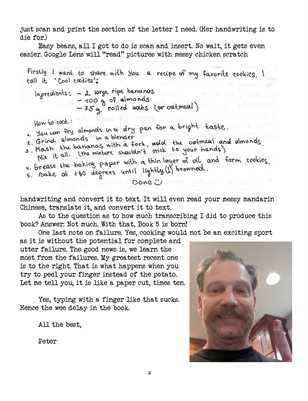 just scan and print the section of the letter I need. (Her handwriting is to
die for.)
Easy beans, all I got to do is scan and insert. No wait, it gets even
easier. Google Lens will "read" pictures with messy chicken scratch
Firstly I want to share with you a recipe of my favorite cookies. I
call it 'Cool cookies':
Ingredients: - 2 large ripe bananas
- 100 g of almonds
- 35 g rolled oats (or oatmeal)
How to cook:
1. You can dry almonds in a dry pan for a bright taste.
2. Grind almonds in a blender
3. Mash the bananas with a fork, add the oatmeal and almonds.
Mix it all. (the mixture shouldn't stick to your hands)
4. Grease the baking paper with a thin layer of oil and form cookies.
5. Bake at 180 degrees until lightly(!) browned.
Done
handwriting and convert it to text. It will even read your messy mandarin
Chinese, translate it, and convert it to text.
As to the question as to how much transcribing I did to produce this
book? Answer: Not much. With that, Book 5 is born!
One last note on failure. Yes, cooking would not be an exciting sport
as it is without the potential for complete and
utter failure. The good news is, we learn the
most from the failures. My greatest recent one
is to the right. That is what happens when you
try to peel your finger instead of the potato.
Let me tell you, it is like a paper cut, times ten.
Yes, typing with a finger like that sucks.
Hence the wee delay in the book.
All the best,
Peter
4